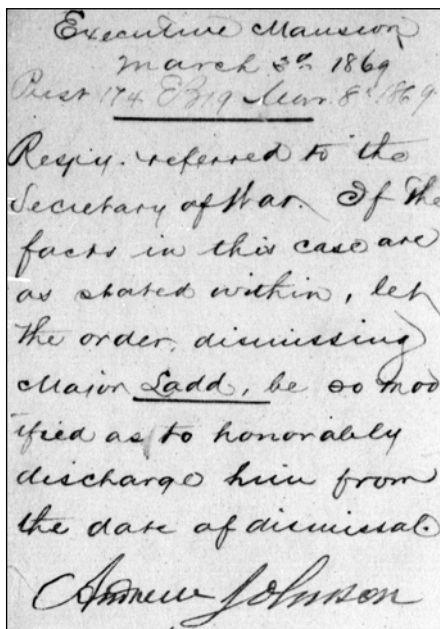 Executive Mansion
March 3d 1869
Prest 174 EB19 Mar. 8 1869
Respy. referred to the
Secretary of War. If the
facts in this case are
as stated within, let
the order, dismissing
Major Ladd, be so mod
ified as to honorably
discharge him from
the date of dismissal.
Andrew Johnson